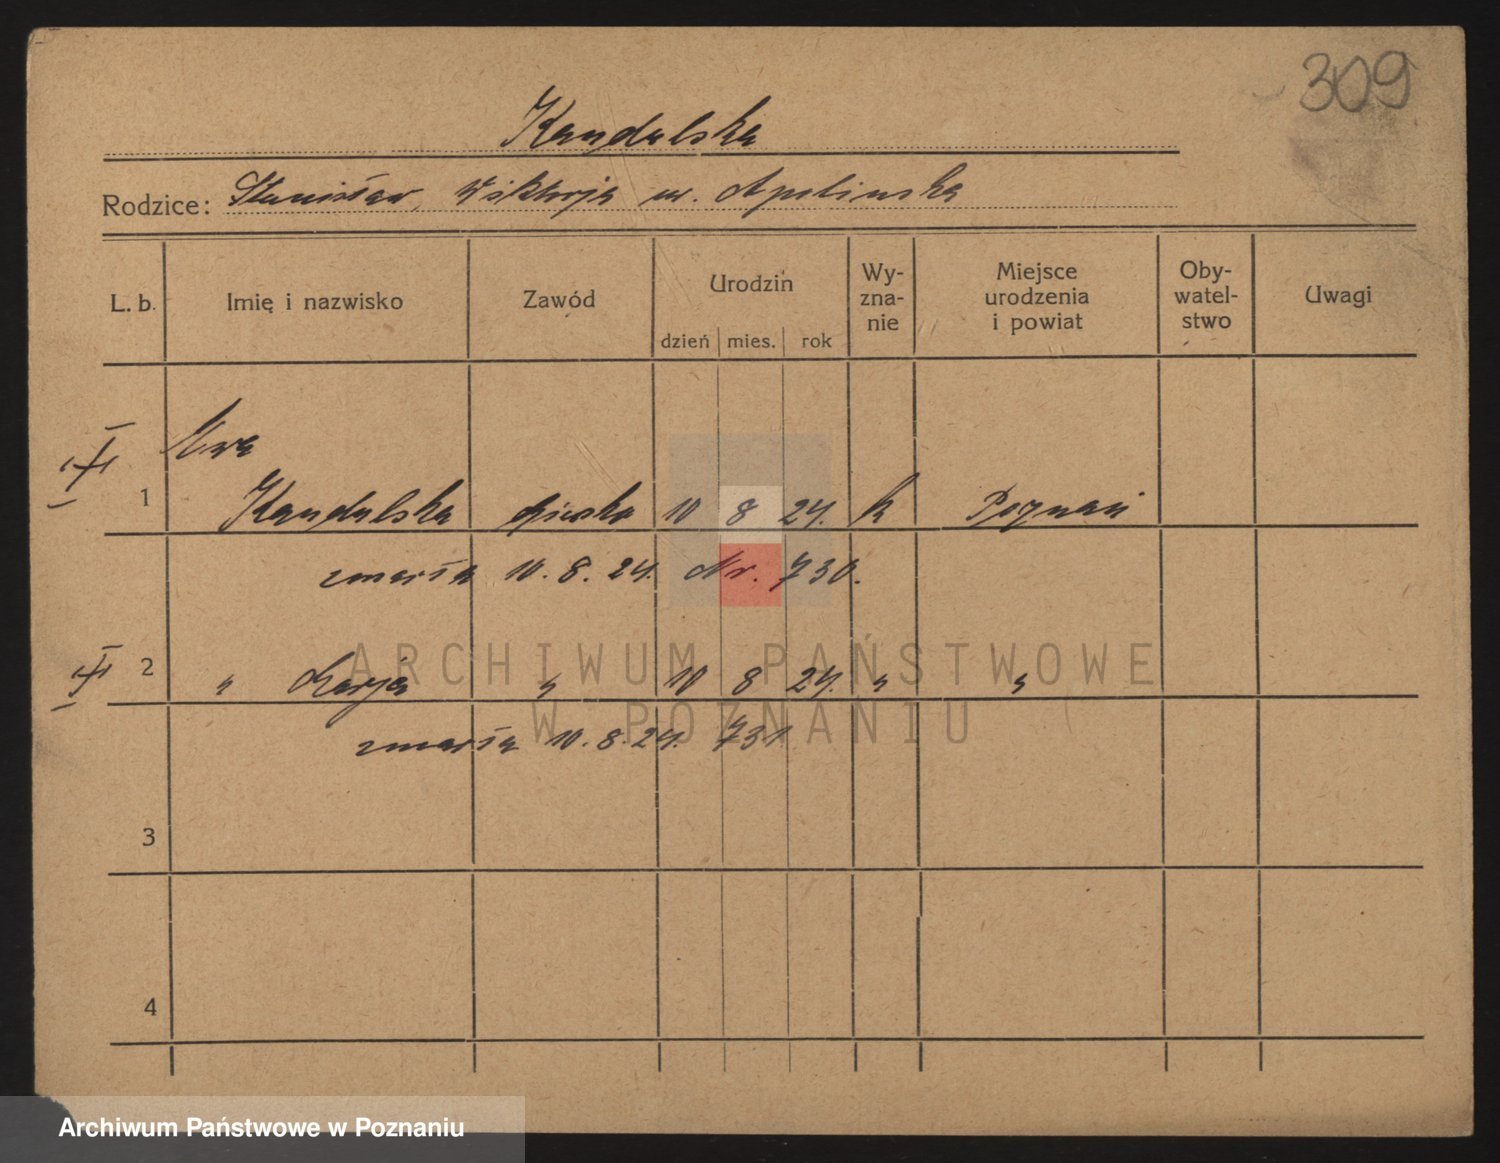 309
Kandulska
Rodzice: Stanisław, Wiktorja ur. Apolinska
L. b. Imię i nazwisko Zawód Urodzin dzień mies. rok Wy-zna-nie Miejsce urodzenia i powiat Oby-watel-stwo Uwagi
1 Kandulska dziecko 10 8 24. k Poznań
zmarła 10. 8. 24. Nr. 730.
2 " " 10 8 24. " "
zmarła 10. 8. 24. 731
3
4
ARCHIWUM PAŃSTWOWE
W POZNANIU
Archiwum Państwowe w Poznaniu